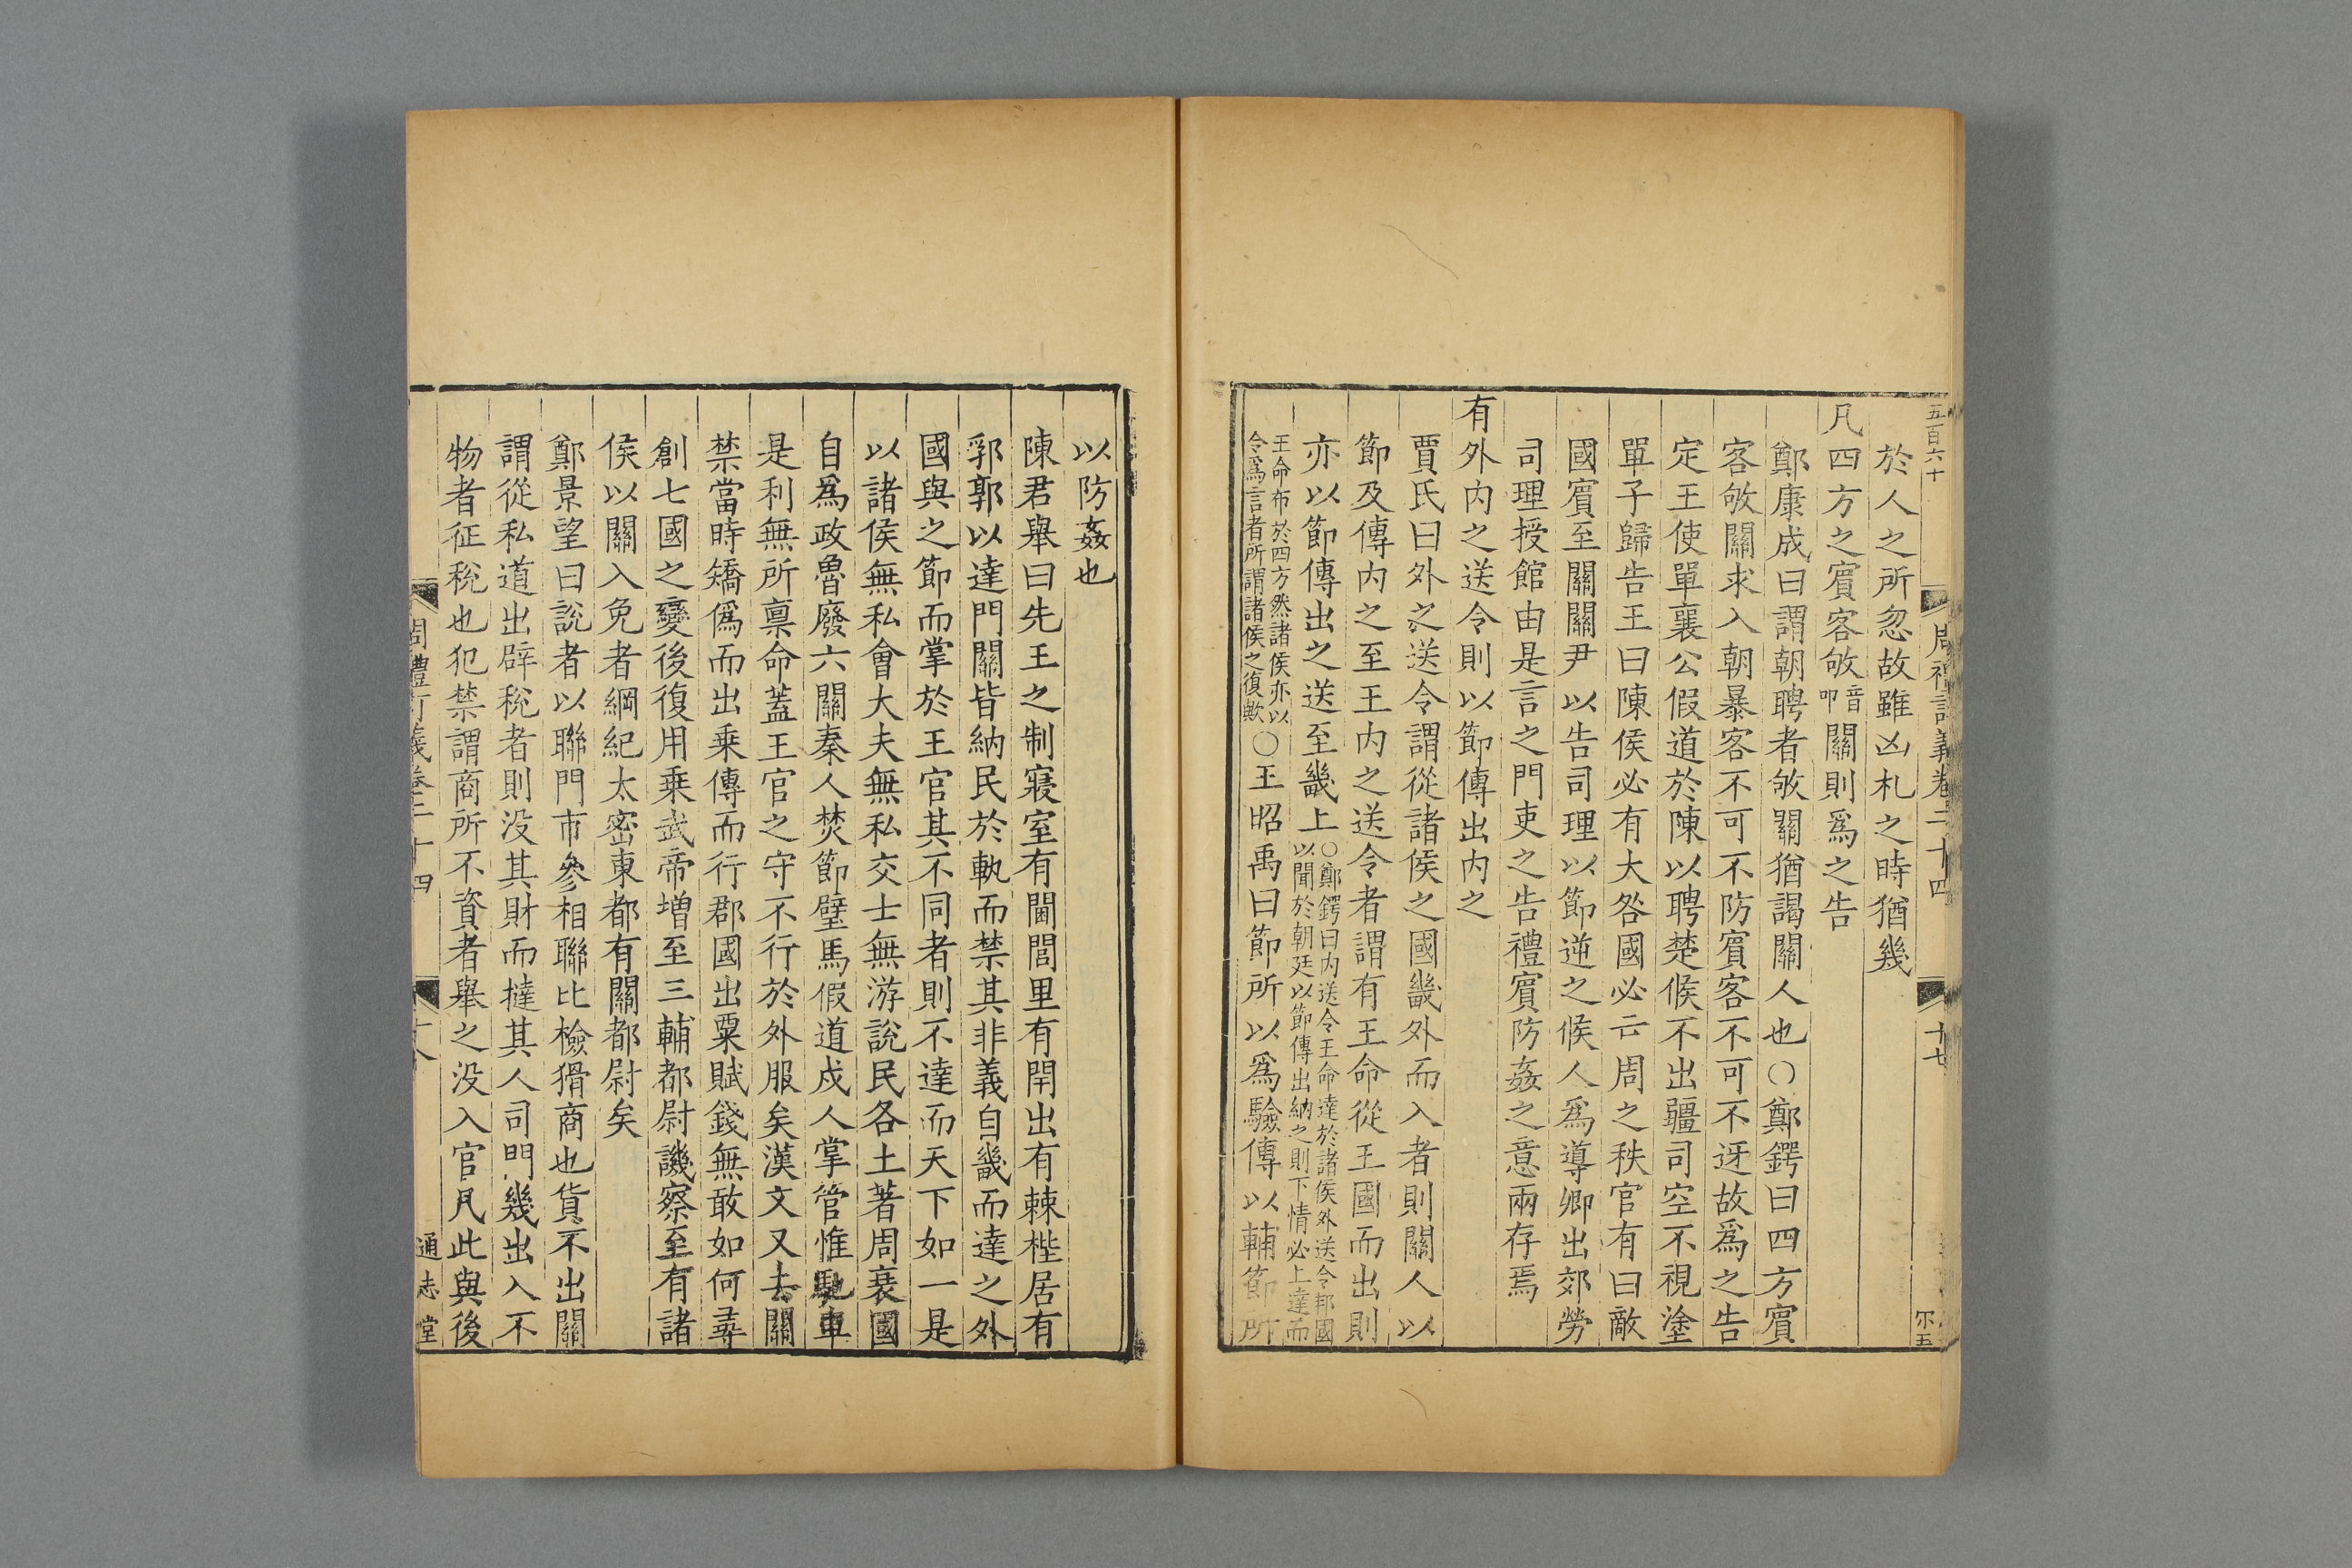 五百六十
周禮訂義卷二十四
十七
尓五
於人之所忽故雖凶札之時猶幾
凡四方之賔客敂音叩關則爲之告
鄭康成曰謂朝聘者敂關猶謁關人也○鄭鍔曰四方賔
客敂關求入朝暴客不可不防賔客不可不迓故爲之告
定王使單襄公假道於陳以聘楚候不出疆司空不視塗
單子歸告王曰陳侯必有大咎國必亡周之秩官有曰敵
國賔至關關尹以告司理以節逆之候人爲導卿出郊勞
司理授館由是言之門吏之告禮賔防姦之意兩存焉
有外内之送令則以節傳出内之
賈氏曰外之送令謂從諸侯之國畿外而入者則關人以
節及傳内之至王内之送令者謂有王命從王國而出則
亦以節傳出之送至畿上○鄭鍔曰内送令王命達於諸侯外送令邦國
以聞於朝廷以節傳出納之則下情必上達而
王命布於四方然諸侯亦以
令爲言者所謂諸侯之復歟○王昭禹曰節所以爲驗傳以輔節所
以防姦也
陳君舉曰先王之制寢室有閫閭里有閈出有棘梐居有
郛郭以達門關皆納民於軌而禁其非義自畿而達之外
國與之節而掌於王官其不同者則不達而天下如一是
以諸侯無私會大夫無私交士無游說民各土著周衰國
自爲政魯廢六關秦人焚節璧馬假道戍人掌管惟馳車
是利無所禀命蓋王官之守不行於外服矣漢文又去關
禁當時矯僞而出乗傳而行郡國出粟賦錢無敢如何尋
創七國之變後復用乗武帝增至三輔都尉譏察至有諸
侯以關入免者綱紀太密東都有關都尉矣
鄭景望曰說者以聯門市參相聯比檢猾商也貨不出關
謂從私道出辟稅者則没其財而撻其人司門幾出入不
物者征稅也犯禁謂商所不資者舉之没入官凡此與後
周禮訂義卷二十四
十八
通志堂